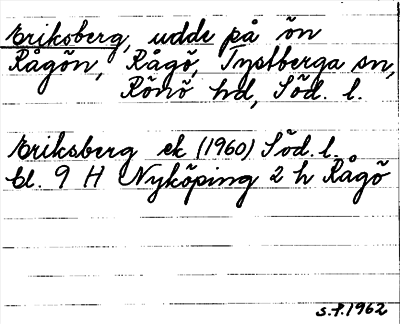 Eriksberg, udde på ön
Rågön, Rågö, Tystberga sn,
Rönö hd, Söd. l.
Eriksberg ek (1960) Söd. l.
bl. 9 H Nyköping 2 h Rågö
S.F. 1962